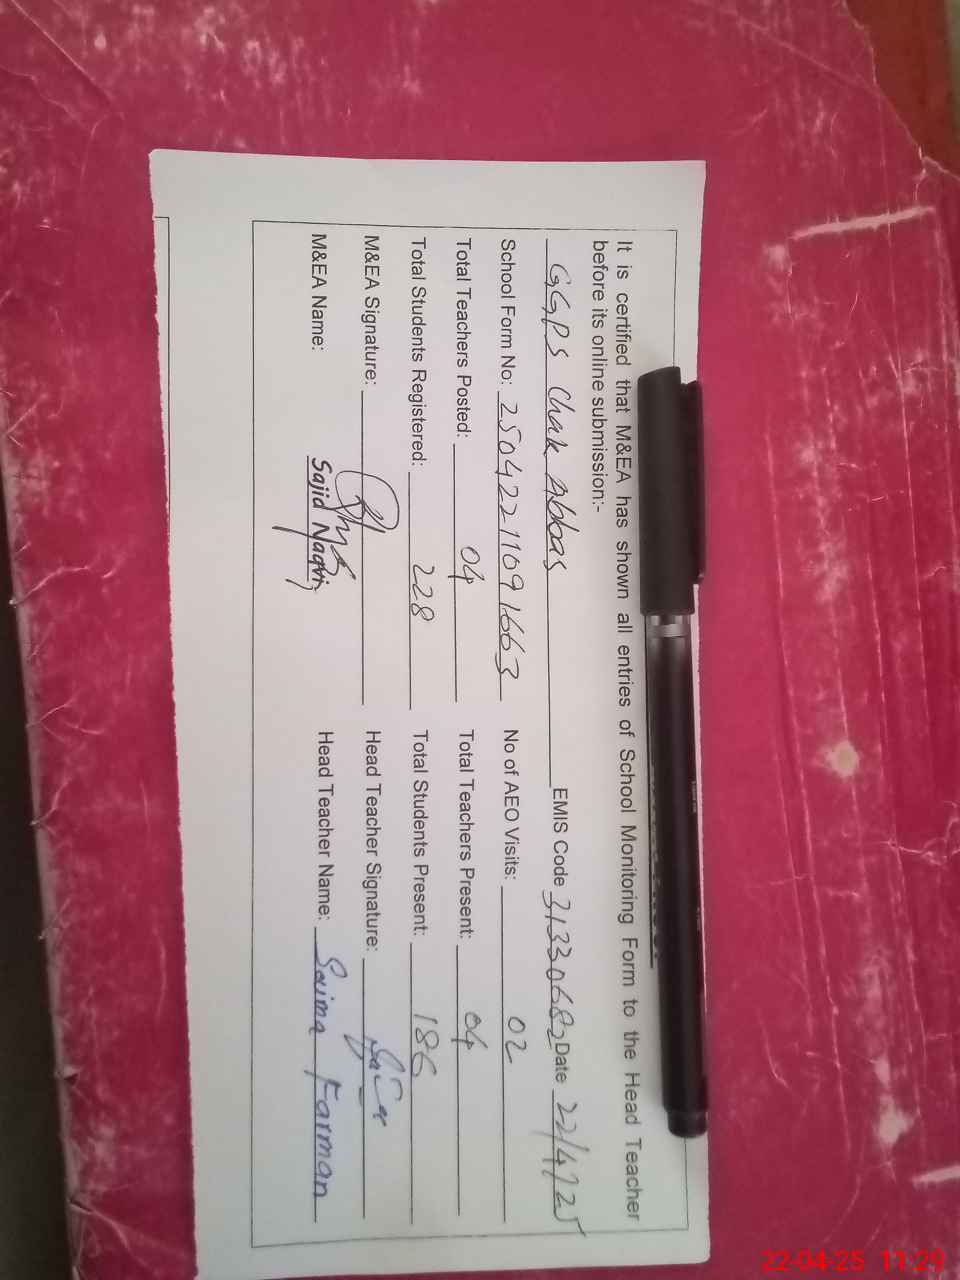 It is certified that M&EA has shown all entries of School Monitoring Form to the Head Teacher
before its online submission:-
GGPS Chak Abbas EMIS Code 31330682 Date 22/4/25
School Form No: 25042211691663 No of AEO Visits: 02
Total Teachers Posted: 04 Total Teachers Present: 04
Total Students Registered: 228 Total Students Present: 186
M&EA Signature: Head Teacher Signature:
M&EA Name: Sajid Naqvi Head Teacher Name: Saima Farman
22-04-25 11:29